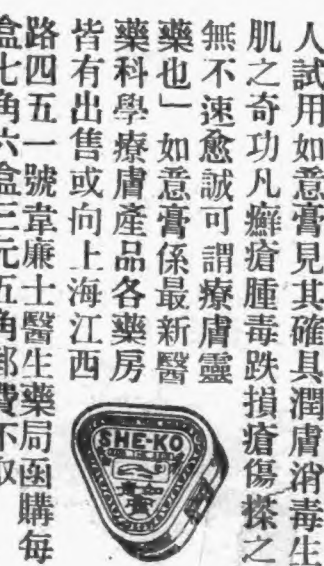 人試用如意膏見其確具潤膚消毒生
肌之奇功凡癬瘡腫毒跌損瘡傷搽之
無不速愈誠可謂療膚靈
藥也」如意膏係最新醫
藥科學療膚產品各藥房
皆有出售或向上海江西
路四五一號韋廉士醫生藥局函購每
盒七角六盒三元五角郵費不取
SHE-KO
如意膏